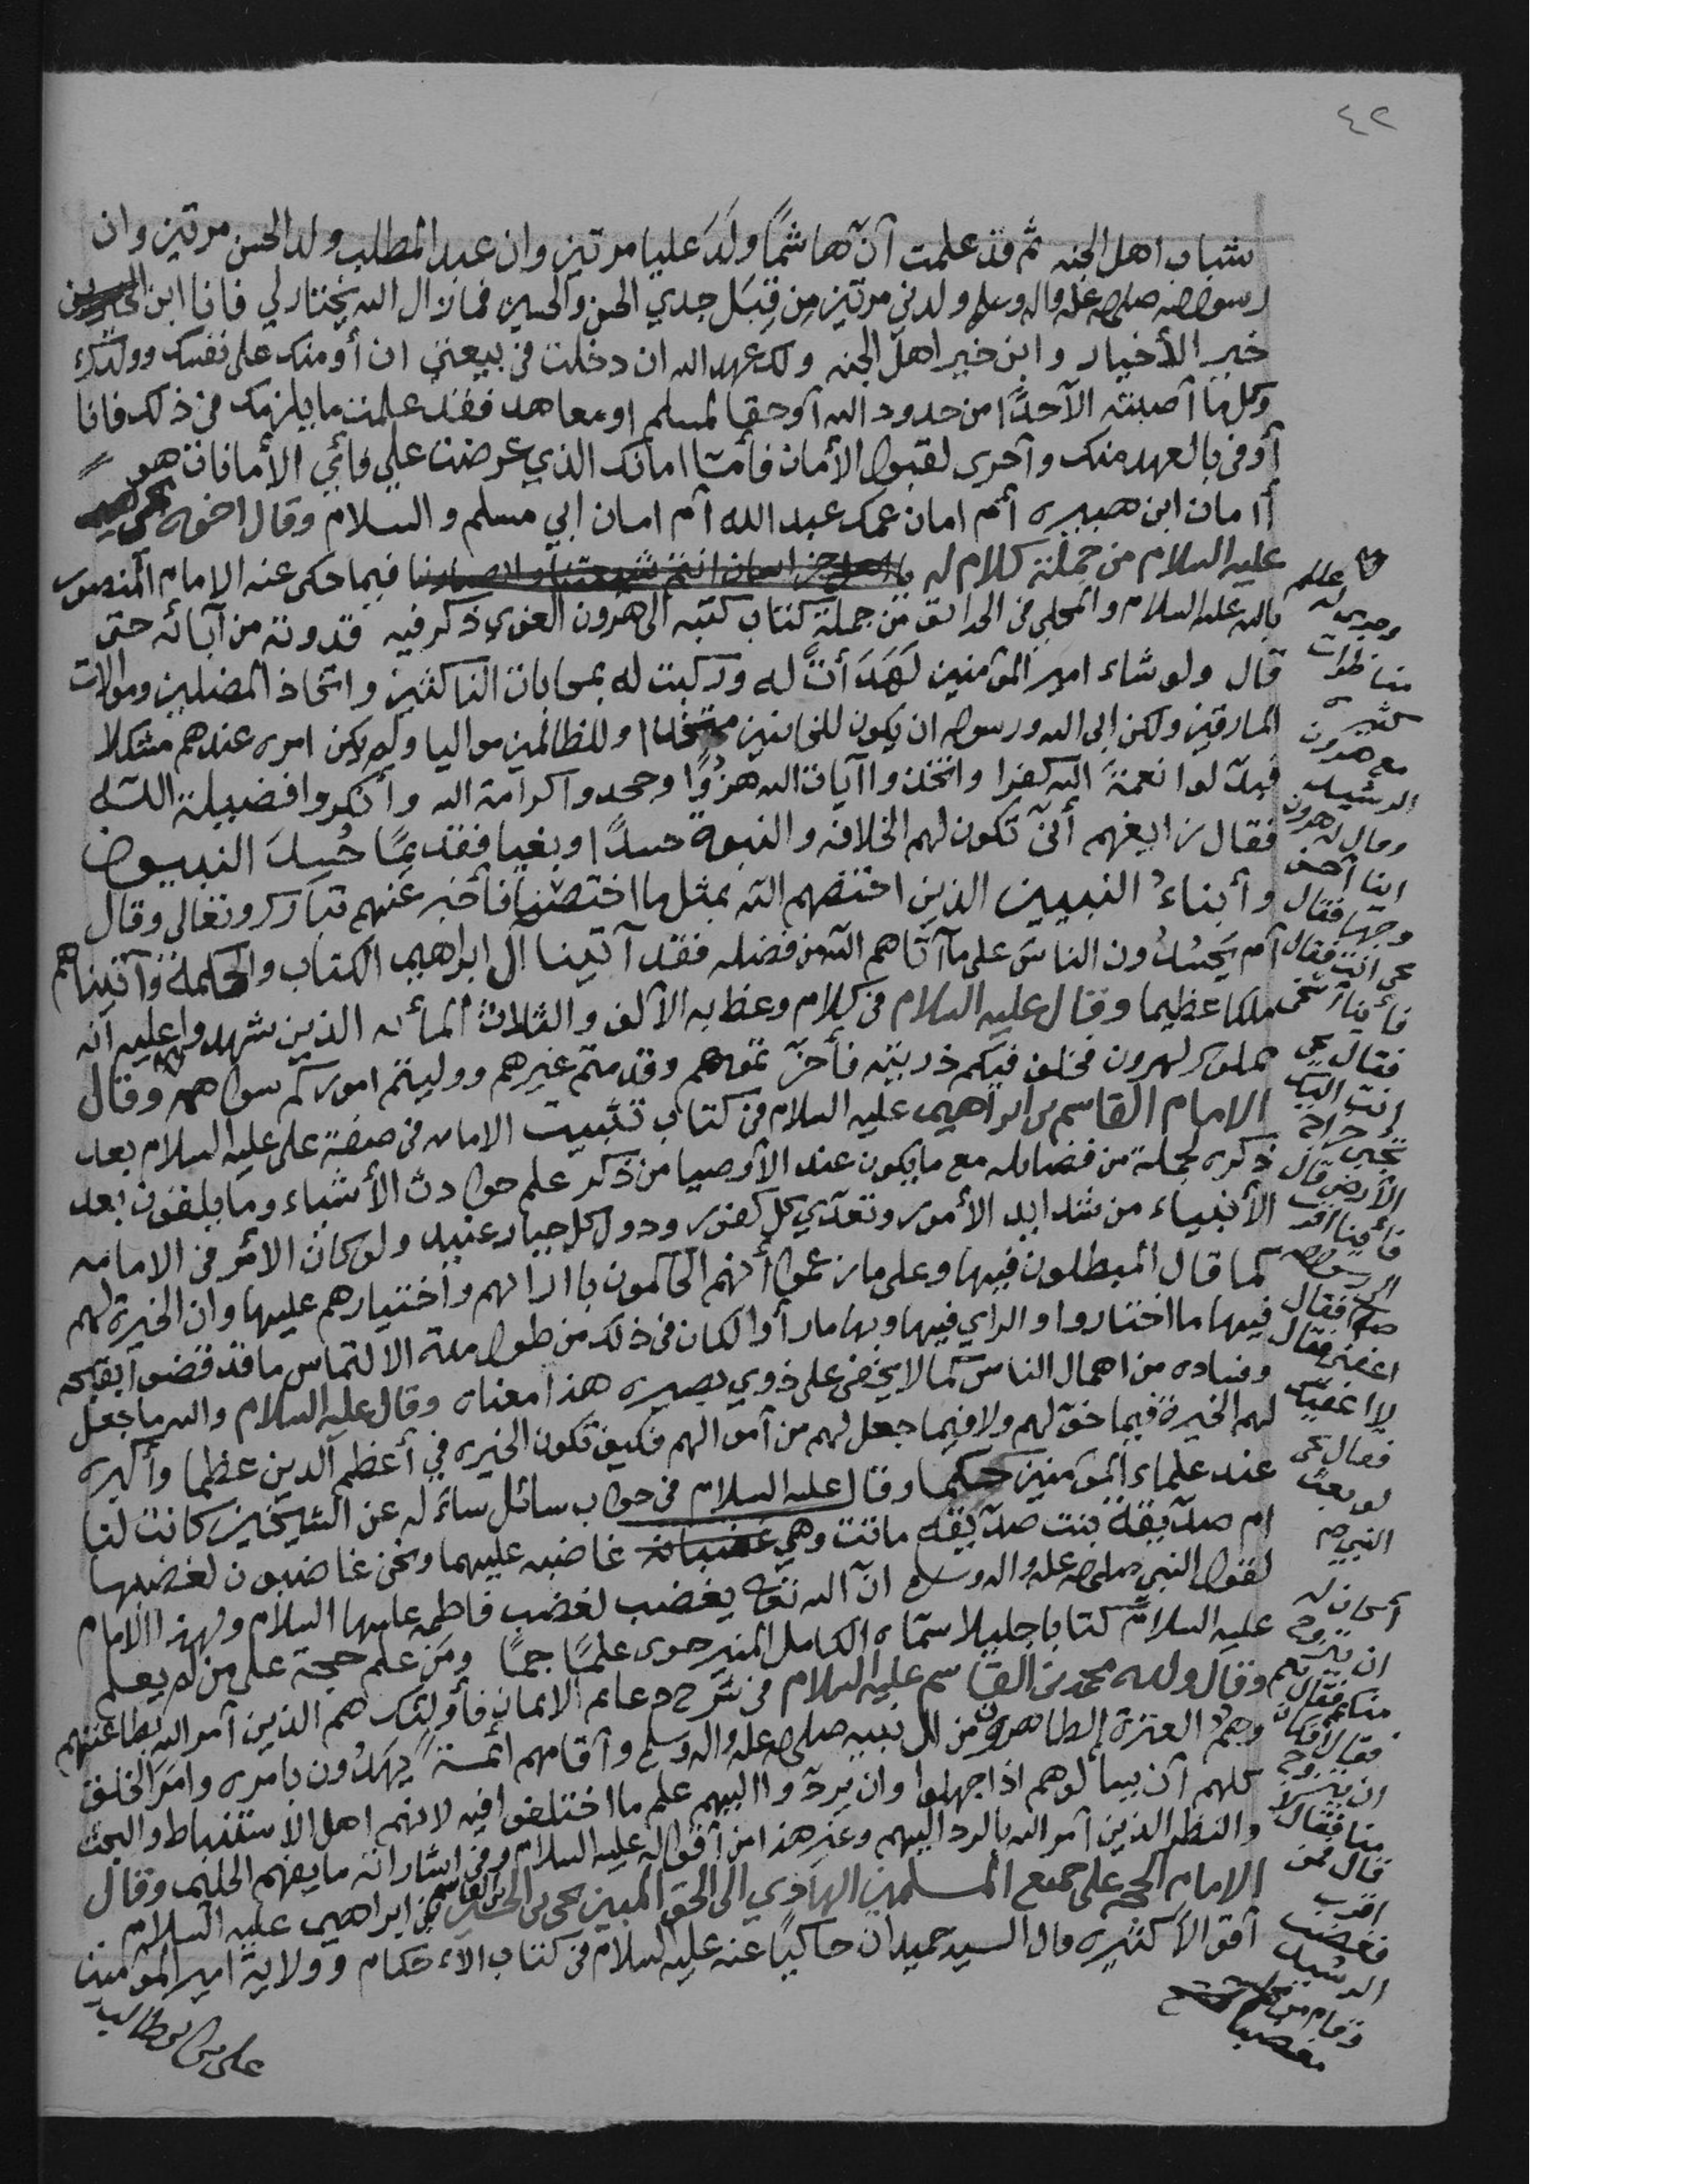 ٤٢
شباب اهل الجنه ثم قد علمت أنّ هاشماً ولَدَ عليا مرتين وان عبد المطلب ولد الحسن مرتين وان
رسول الله صلى الله عليه واله وسلم ولدني مرتين مِن قِبَل جدي الحسن والحسين فما زال الله يختار لي فانا ابن
خير الأخيار وابن خير اهل الجنه ولك عهد الله ان دخلت في بيعتي ان أومنك على نفسك وولدك
وكل ما أصبته الّا حدًّا من حدود الله أو حقا لمسلم او معاهد فقد علمت ما يلزمك في ذلك فانا
أوفى بالعهد منك وأحرى لقبول الأمان فأمّا امانك الذي عرضت علي فأي الأمانات هو
أامان ابن هبيره أم امان عمك عبد الله أم امان ابي مسلم والسلام وقال اخوه يحيى
عليه السلام من جملة كلام له فيما حكى عنه الامام المنصور
بالله عليه السلام والمحلي في الحدائق من جملة كتاب كتبه الى هرون الغوي ذكر فيه قدوته من آبائه حتى
قال ولو شاء امير المؤمنين لَهَدَأَتْ له وركبت له بمحابات الناكثين واتخاذ المضلين وموالات
المارقين ولكن ابى الله ورسوله ان يكون للخائنين متخذا وللظالمين مواليا ولم يكن امره عندهم مشكلا
فبدّلوا نعمةَ الله كفرا واتخذوا آيات الله هزُوًا وجحدوا كرامة الله وأنكروا فضيلة الله
فقال رابعهم أنّى تكون لهم الخلافه والنبوة حسدًا وبغيا فقديمًا حُسِدَ النبيون
وأبناءُ النبيين الذين اختصهم الله بمثل ما اختصنا فأخبر عنهم تبارك وتعالى وقال
أم يَحسُدُون الناسَ على ما آتاهم الله من فضله فقد آتينا آل ابراهيم الكتاب والحكمة وآتيناهم
ملكا عظيما وقال عليه السلام في كلام وعظ به الآلف والثلاث المائه الذين شهدوا عليه انه
مملوك لهرون فخلف فيكم ذريته فأخرتموهم وقدمتم غيرهم ووليتم اموركم سواهم وقال
الامام القاسم بن ابراهيم عليه السلام في كتاب تثبيت الامامه في صفة علي عليه السلام بعد
ذكره لجملة من فضايله مع ما يكون عند الأوصيا من ذكر علم حوادث الأشياء وما يلقون بعد
الأنبياء من شدايد الأمور وتعدّي كل كفور ودول كل جبار عنيد ولو كان الأمر في الامامه
كما قال المبطلون فيها وعلى ما زعموا أنهم الحاكمون بارائهم واختيارهم عليها وان الخيرة لهم
فيها ما اختاروا والراي فيها وبها ما رأوا لكان في ذلك من طول مدة الالتماس ما قد قضوا بقبحه
وفساده من اهمال الناس كما لا يخفى على ذوي بصيره هذا معناه وقال عليه السلام والله ما جعل
لهم الخيرة فيما خوّلهم ولا فيما جعل لهم من أموالهم فكيف تكون الخيره في أعظم الدين عظما وأكبره
عند علماء المؤمنين حكما وقال عليه السلام في جواب سائل سأله عن الشيخين كانت لنا
ام صدّيقة بنت صدّيقه ماتت وهي غضبانه غاضبه عليهما ونحن غاضبون لغضبها
لقول النبي صلى الله عليه واله وسلم انّ الله تعالى يغضب لغضب فاطمه عليها السلام ولهذا الامام
عليه السلام كتابا جليلا سمّاه الكامل المنير حوى علمًا جمًا ومَن علم حجة على من لم يعلم
وقال ولده محمد بن القاسم عليه السلام في شرح دعائم الايمان فأولئك هم الذين أمر الله بطاعتهم
وهمُ العترة الطاهرون من ال نبيه صلى الله عليه واله وسلم وأقامهم أئمةً يهدُون بامره وامَرَ الخلق
كلهم أن يسألوهم اذا جهلوا وان يردّوا اليهم علم ما اختلفوا فيه لانهم اهل الاستنباط والبحث
والنظر الذين أمر الله بالرد اليهم وغير هذا من أقواله عليه السلام وفي اشاراته ما يفهم الحليم وقال
الامام الحجه على جميع المسلمين الهادي الى الحق المبين يحيى بن الحسين بن القاسم بن ابراهيم عليه السلام
أقوالا كثيره قال السيد حميدان حاكيًا عنه عليه السلام في كتاب الاحكام وولاية امير المؤمنين
علي بن ابي طالب
وجرى له
مناظرات
كثيره
مع هرون
الرشيد
وقال له هرون
اينا أحسن
وجها فقال
يحيى انت فقال
فأينا أسخى
فقال يحيى
انت اليك
يجبى خراج
الأرض قال
فأينا اقرب
الى رسول الله
صلم فقال
اعفني فقال
لا اعفيك
فقال يحيى
لو بعث
النبي صلم
أكان له
ان يتزوج
منكم فقال نعم
فقال أفكان
ان يتزوج
منا فقال لا
قال فمن
اقرب
فغضب
الرشيد
وقام من
مغضبا